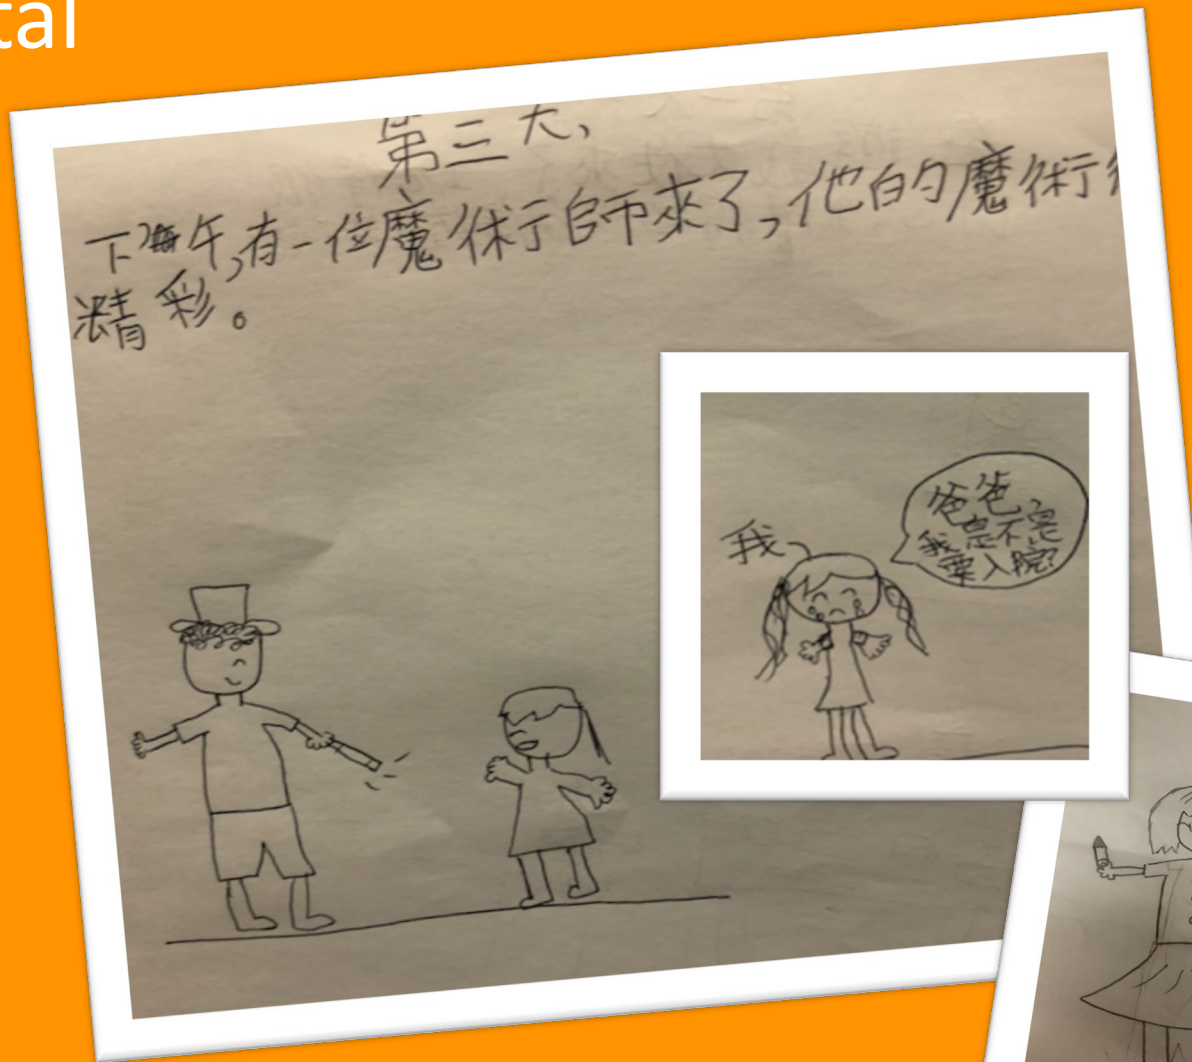 tal
第三大,
下午,有一位魔術師來了,他的魔術
精彩。
我
爸爸
我是不是
要入院?